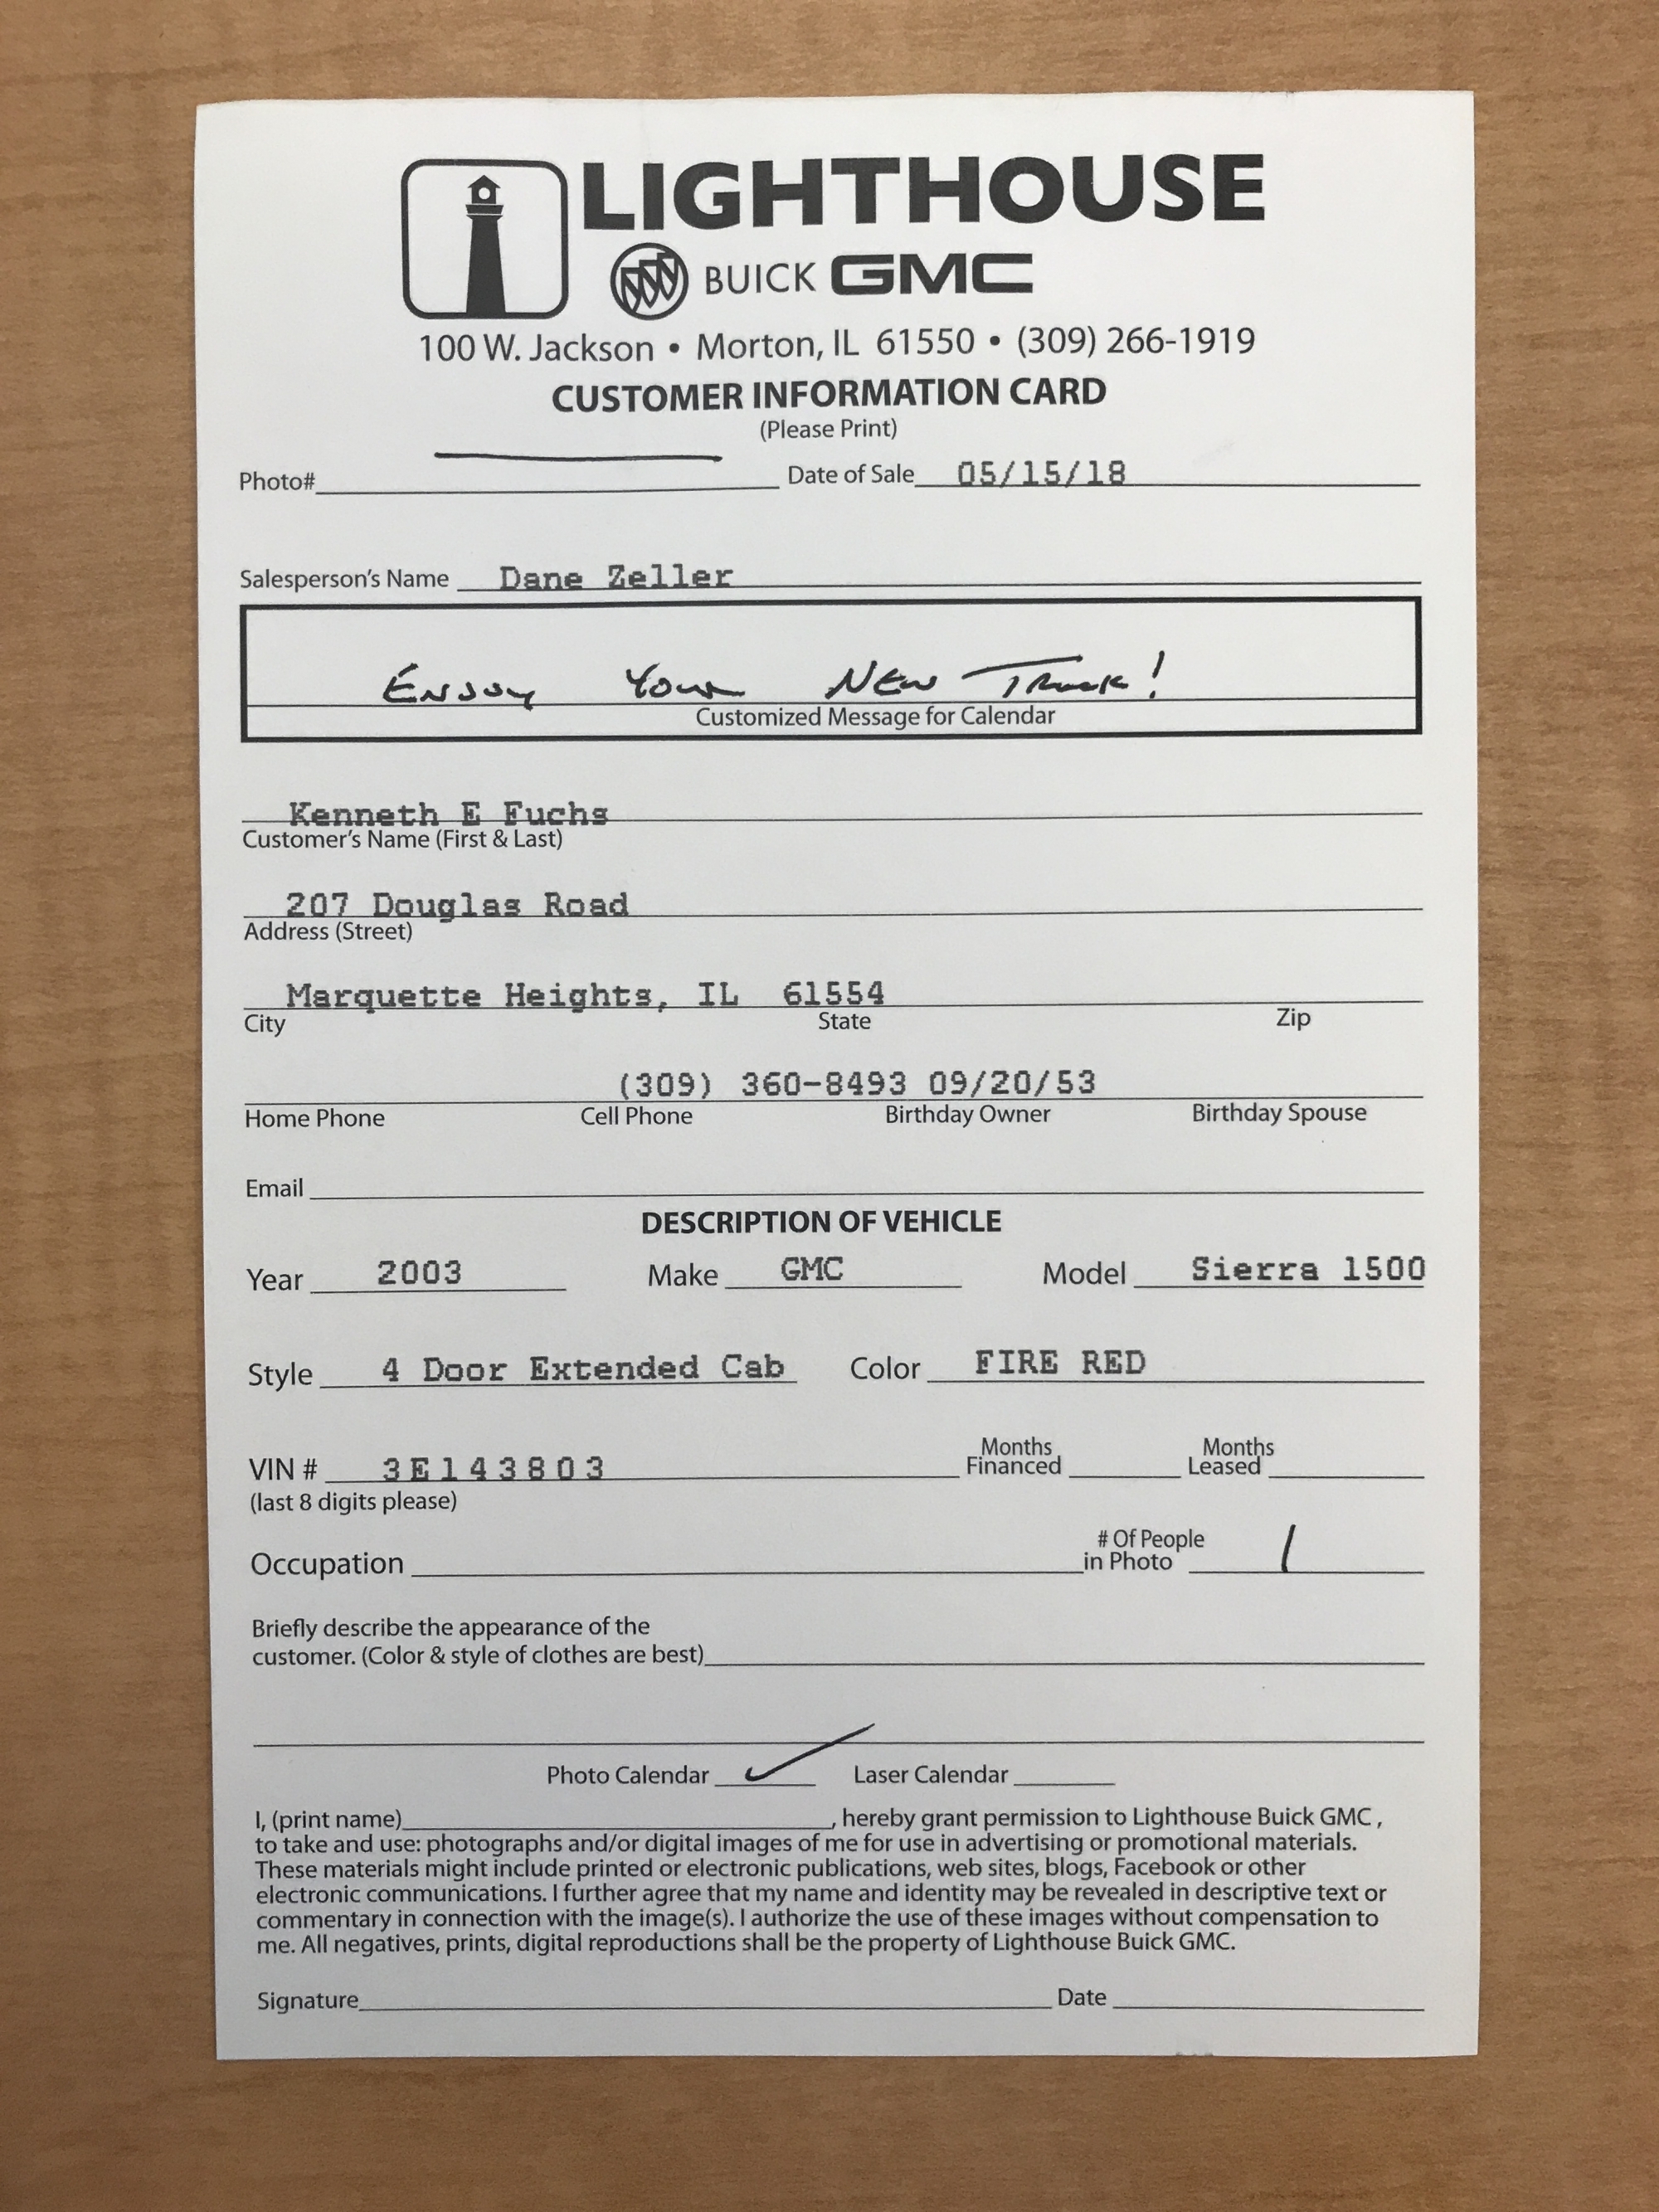 LIGHTHOUSE
BUICK GMC
100 W. Jackson • Morton, IL 61550 • (309) 266-1919
CUSTOMER INFORMATION CARD
(Please Print)
Photo# Date of Sale 05/15/18
Salesperson's Name Dane Zeller
Enjoy Your New Truck!
Customized Message for Calendar
Kenneth E Fuchs
Customer's Name (First & Last)
207 Douglas Road
Address (Street)
Marquette Heights, IL 61554
City State Zip
(309) 360-8493 09/20/53
Home Phone Cell Phone Birthday Owner Birthday Spouse
Email
DESCRIPTION OF VEHICLE
Year 2003 Make GMC Model Sierra 1500
Style 4 Door Extended Cab Color FIRE RED
VIN # 3E143803 Months Financed Months Leased
(last 8 digits please)
Occupation # Of People in Photo 1
Briefly describe the appearance of the
customer. (Color & style of clothes are best)
Photo Calendar ✓ Laser Calendar
I, (print name) , hereby grant permission to Lighthouse Buick GMC ,
to take and use: photographs and/or digital images of me for use in advertising or promotional materials.
These materials might include printed or electronic publications, web sites, blogs, Facebook or other
electronic communications. I further agree that my name and identity may be revealed in descriptive text or
commentary in connection with the image(s). I authorize the use of these images without compensation to
me. All negatives, prints, digital reproductions shall be the property of Lighthouse Buick GMC.
Signature Date